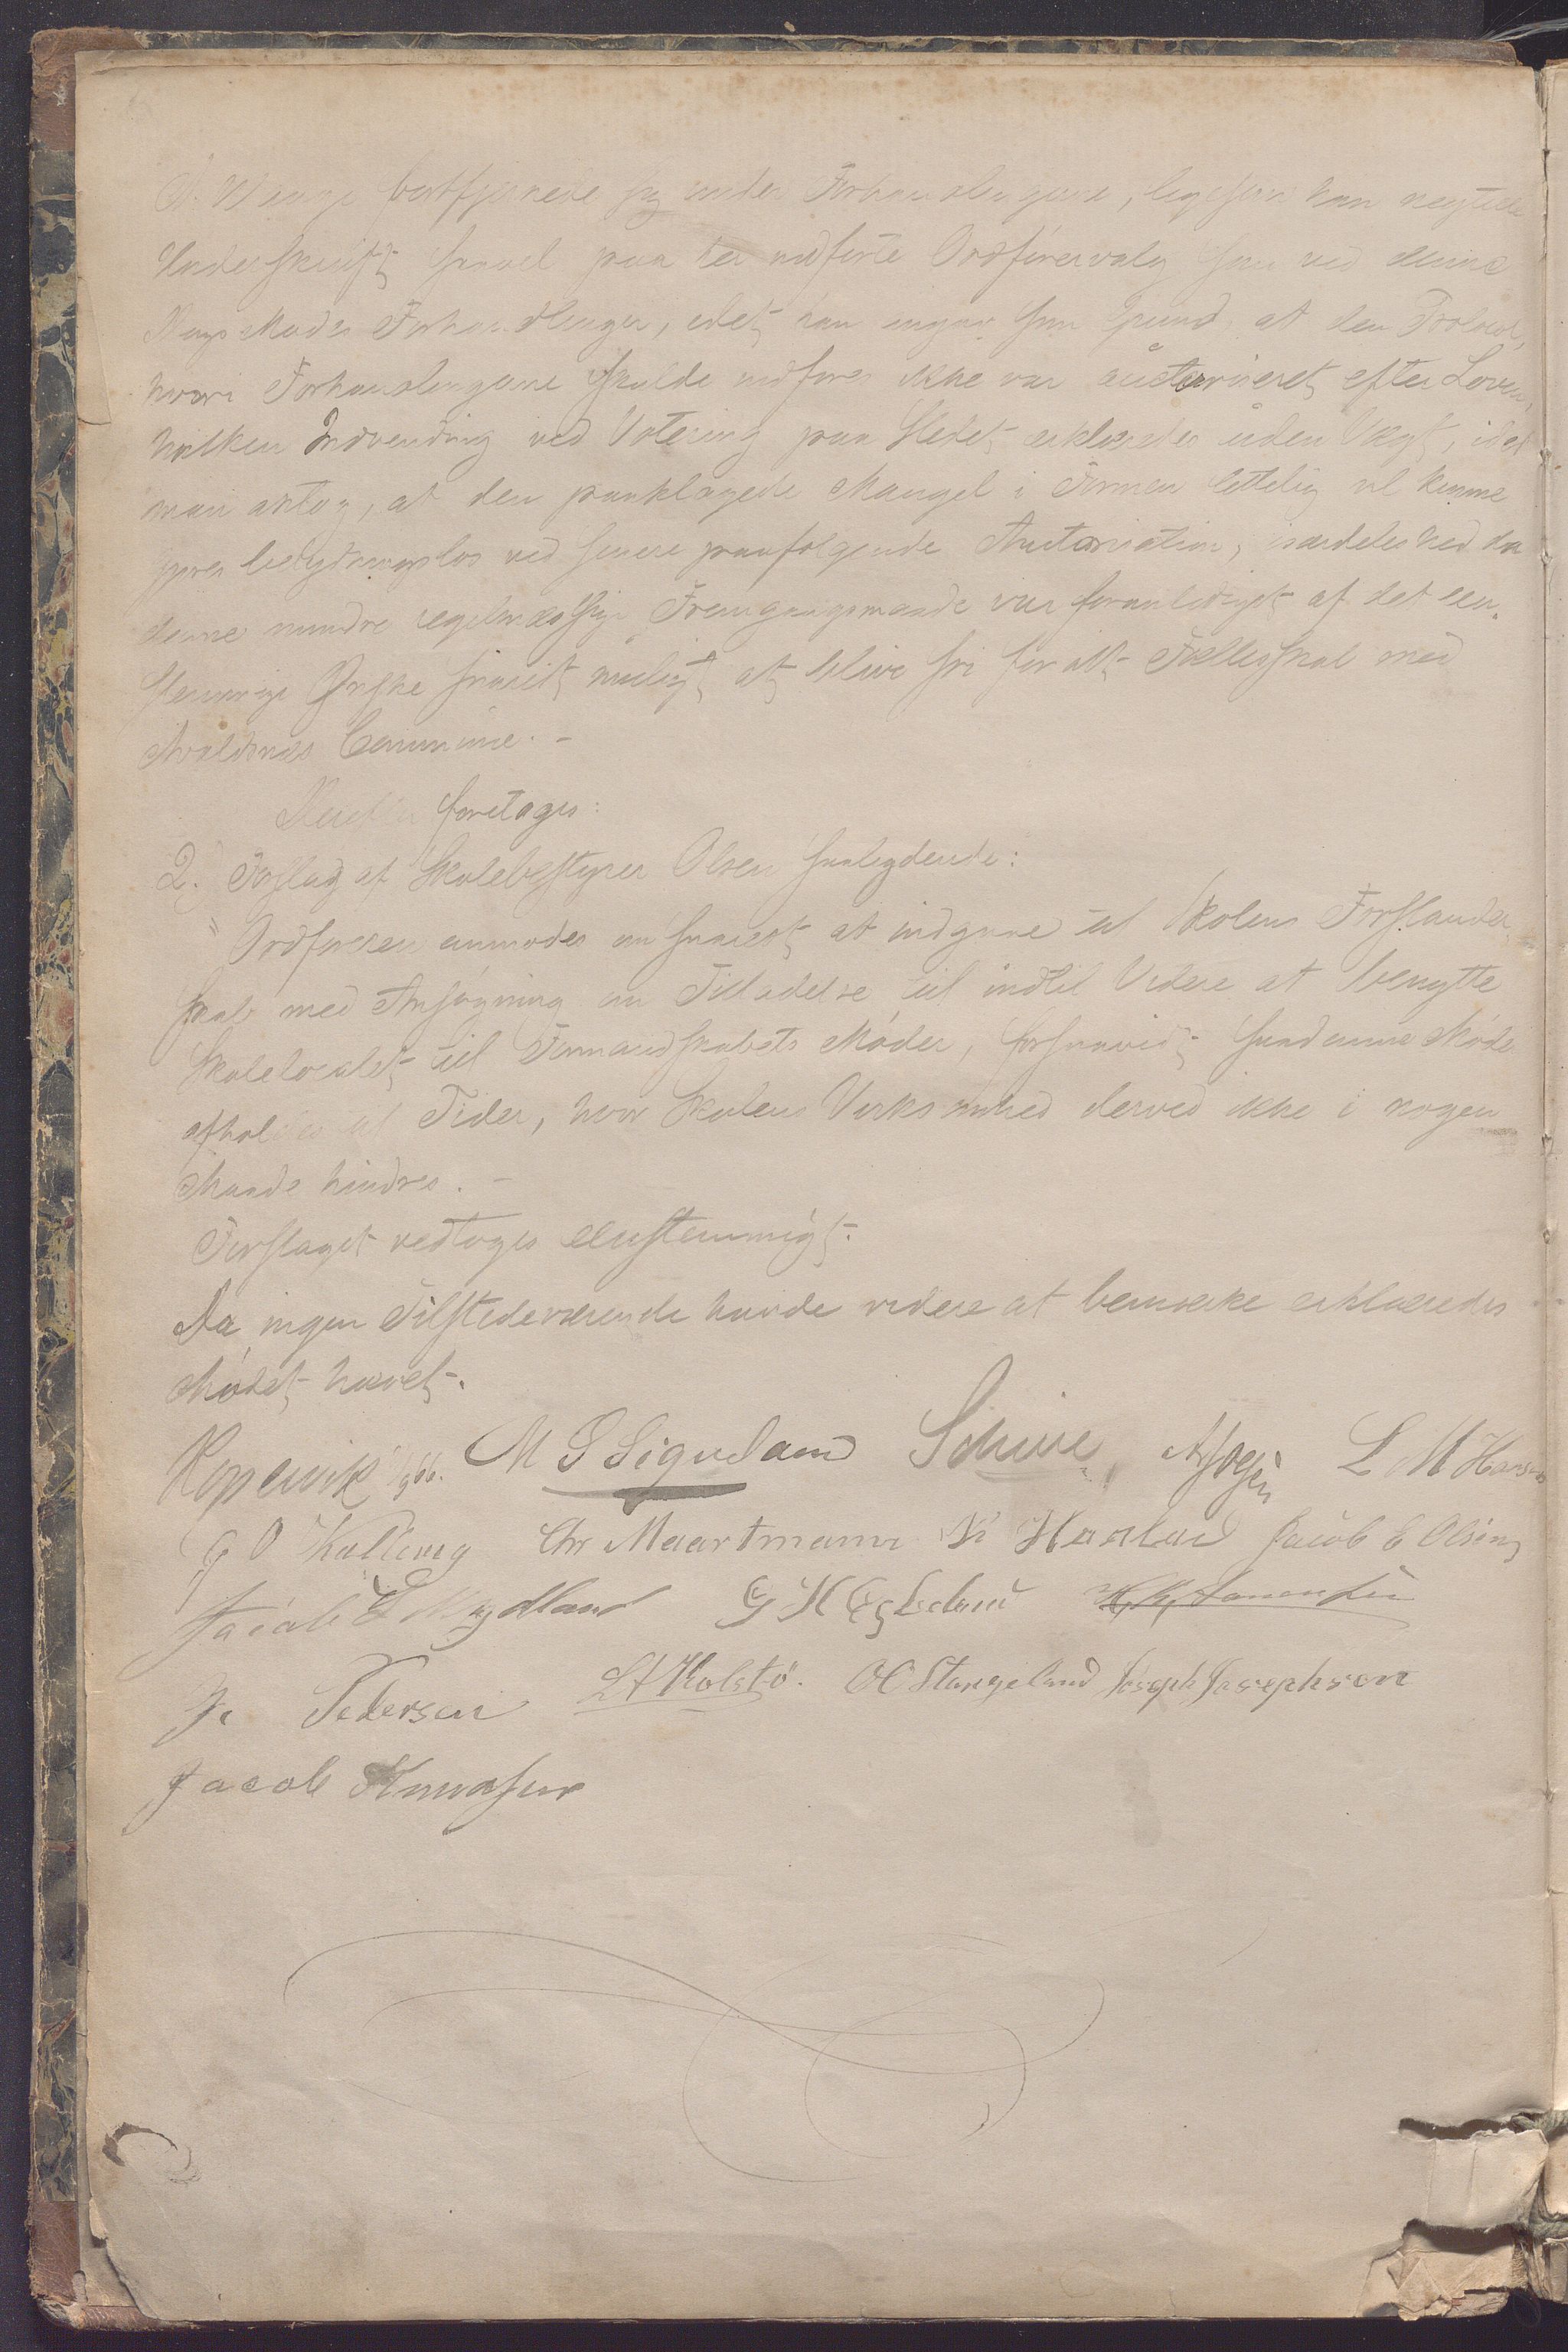 bortfjernede sig under Forhandlingerne, ligesom han negtede
Underskrift saavel paa det udførte Ordførervalg som ved denne
Dags Mødes Forhandlinger, idet han angav som Grund, at den Protocol,
hvori Forhandlingerne skulde indføres ikke var auctoriseret efter Loven,
hvilken Indvending ved Votering paa Stedet erklæredes uden Vægt, idet
man antog, at den paaklagede Mangel i Formen lettelig vil kunne
gjøres betydningsløs ved senere paafølgende Auctorisation, isærdeleshed da
denne mindre regelmæssige Fremgangsmaade var foranlediget af det een-
stemmige Ønske snarest muligt at blive fri for alt Fællesskab med
Avaldsnes Commune. -
foretoges:
2. Forslag af Skolebestyrer Olsen saalydende:
"Ordføreren anmodes om snarest at indgaae til Skolens Forstander-
skab med Ansøgning om Tilladelse til indtil Videre at benytte
Skolelocalet til Formandskabets Møder, forsaavidt saadanne Møder
afholdes til Tider, hvor Skolens Virksomhed derved ikke i nogen
Maade hindres. -
Forslaget vedtoges eenstemmigt.
Da ingen Tilstedeværende havde videre at bemærke erklæredes
Mødet hævet.
Kopervik M S Sigveland Schiøe L M Hansen
G O Kalling Chr Maartmann Jacob E Olsen
Jacob E Mydland G H Eegeland
J. Pedersen L A Holstø. O C Stangeland Joseph Josephson
Jacob Knudsen